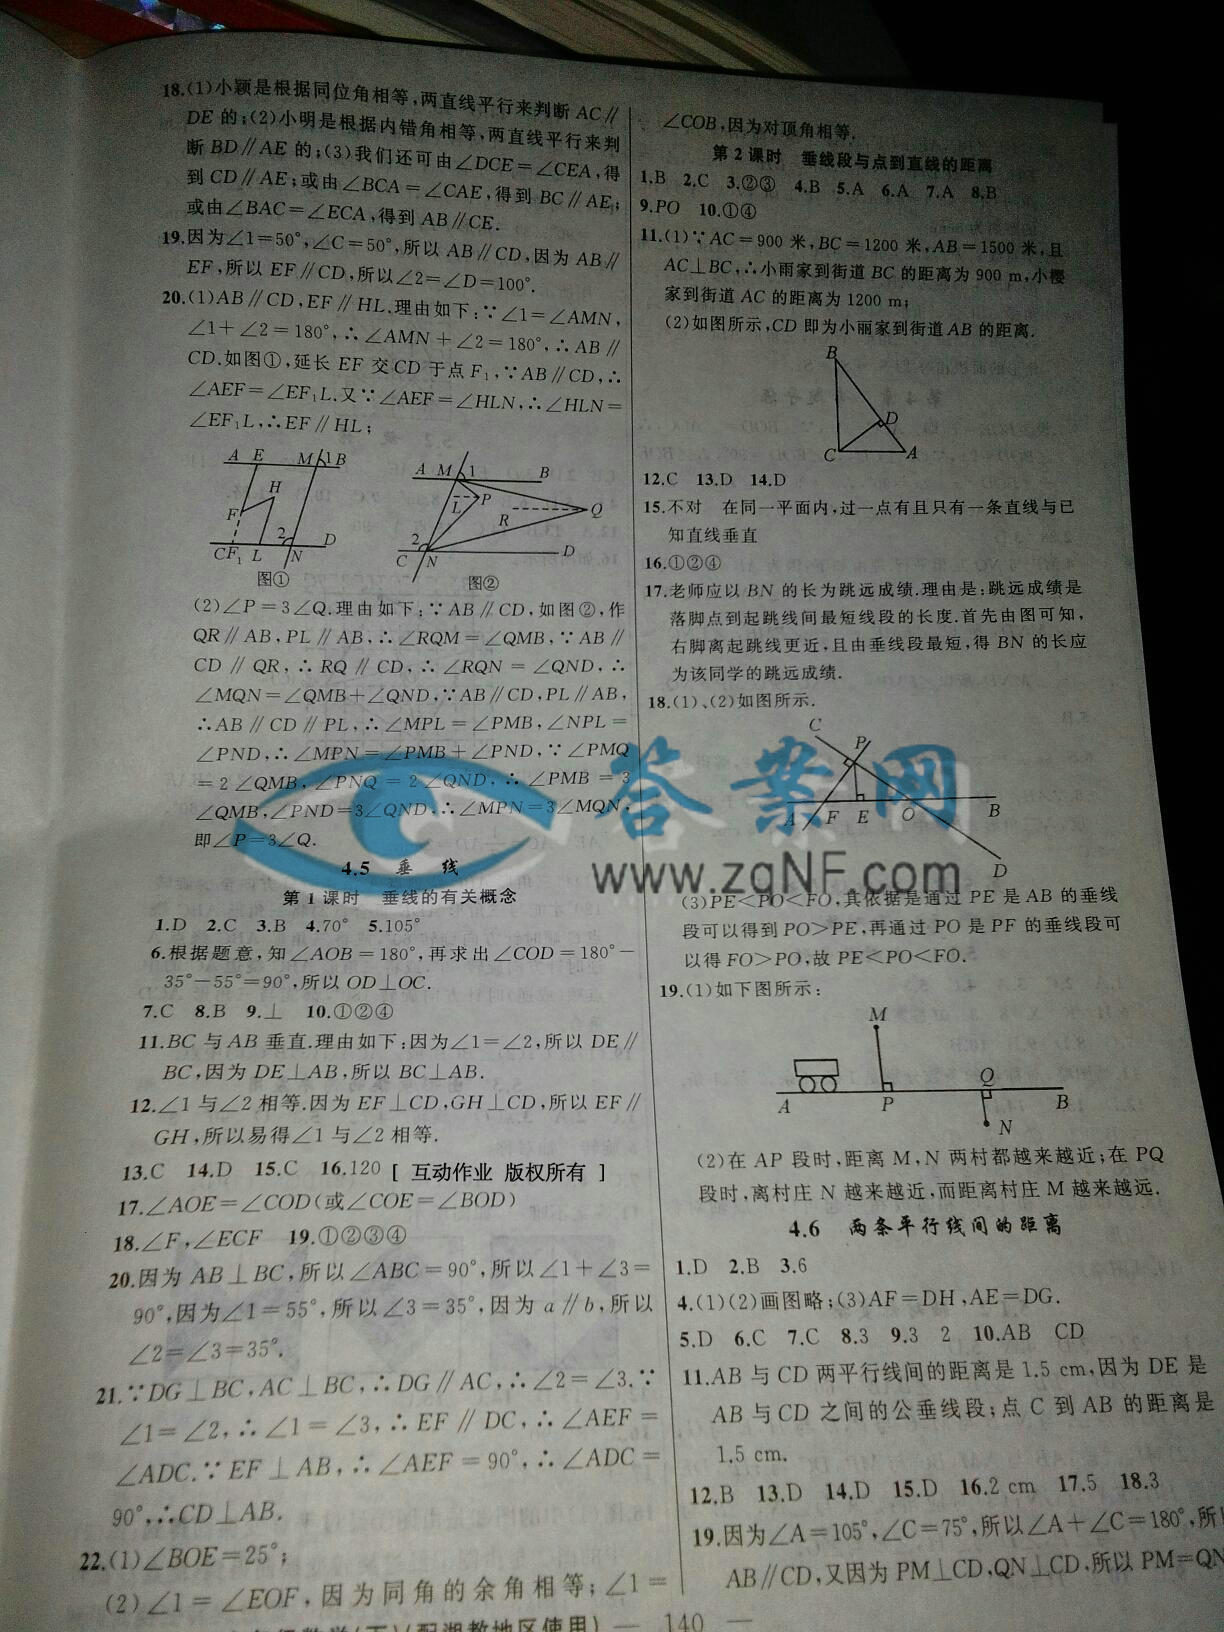 18.(1)小颖是根据同位角相等,两直线平行来判断 AC∥
DE 的;(2)小明是根据内错角相等,两直线平行来判
断 BD∥AE 的;(3)我们还可由∠DCE=∠CEA,得
到 CD∥AE;或由∠BCA=∠CAE,得到 BC∥AE;
或由∠BAC=∠ECA,得到 AB∥CE.
19.因为∠1=50°,∠C=50°,所以 AB∥CD,因为 AB∥
EF,所以 EF∥CD,所以∠2=∠D=100°.
20.(1)AB∥CD,EF∥HL.理由如下:∵∠1=∠AMN,
∠1+∠2=180°,∴∠AMN+∠2=180°,∴AB∥
CD.如图①,延长 EF 交 CD 于点 F₁,∵AB∥CD,∴
∠AEF=∠EF₁L.又∵∠AEF=∠HLN,∴∠HLN=
∠EF₁L,∴EF∥HL;
A E M 1 B
H
F
2
C F₁ L N D
图①
A M 1 B
L P
R Q
2
C N D
图②
(2)∠P=3∠Q.理由如下:∵AB∥CD,如图②,作
QR∥AB,PL∥AB,∴∠RQM=∠QMB,∵AB∥
CD∥QR,∴RQ∥CD,∴∠RQN=∠QND,∴
∠MQN=∠QMB+∠QND,∵AB∥CD,PL∥AB,
∴AB∥CD∥PL,∴∠MPL=∠PMB,∠NPL=
∠PND,∴∠MPN=∠PMB+∠PND,∵∠PMQ
=2∠QMB,∠PNQ=2∠QND,∴∠PMB=3
∠QMB,∠PND=3∠QND,∴∠MPN=3∠MQN,
即∠P=3∠Q.
4.5 垂 线
第 1 课时 垂线的有关概念
1.D 2.C 3.B 4.70° 5.105°
6.根据题意,知∠AOB=180°,再求出∠COD=180°-
35°-55°=90°,所以 OD⊥OC.
7.C 8.B 9.⊥ 10.①②④
11.BC 与 AB 垂直.理由如下:因为∠1=∠2,所以 DE∥
BC,因为 DE⊥AB,所以 BC⊥AB.
12.∠1 与∠2 相等.因为 EF⊥CD,GH⊥CD,所以 EF∥
GH,所以易得∠1 与∠2 相等.
13.C 14.D 15.C 16.120 [ 互动作业 版权所有 ]
17.∠AOE=∠COD(或∠COE=∠BOD)
18.∠F,∠ECF 19.①②③④
20.因为 AB⊥BC,所以∠ABC=90°,所以∠1+∠3=
90°,因为∠1=55°,所以∠3=35°,因为 a∥b,所以
∠2=∠3=35°.
21.∵DG⊥BC,AC⊥BC,∴DG∥AC,∴∠2=∠3.∵
∠1=∠2,∴∠1=∠3,∴EF∥DC,∴∠AEF=
∠ADC.∵EF⊥AB,∴∠AEF=90°,∴∠ADC=
90°,∴CD⊥AB.
22.(1)∠BOE=25°;
(2)∠1=∠EOF,因为同角的余角相等;∠1=
∠COB,因为对顶角相等.
第 2 课时 垂线段与点到直线的距离
1.B 2.C 3.②③ 4.B 5.A 6.A 7.A 8.B
9.PO 10.①④
11.(1)∵AC=900 米,BC=1200 米,AB=1500 米,且
AC⊥BC,∴小雨家到街道 BC 的距离为 900 m,小樱
家到街道 AC 的距离为 1200 m;
(2)如图所示,CD 即为小丽家到街道 AB 的距离.
B
D
C A
12.C 13.D 14.D
15.不对 在同一平面内,过一点有且只有一条直线与已
知直线垂直
16.①②④
17.老师应以 BN 的长为跳远成绩.理由是:跳远成绩是
落脚点到起跳线间最短线段的长度.首先由图可知,
右脚离起跳线更近,且由垂线段最短,得 BN 的长应
为该同学的跳远成绩.
18.(1)、(2)如图所示.
C P
A F E O B
D
答案网
www.zqNF.com
(3)PE<PO<FO,其依据是通过 PE 是 AB 的垂线
段可以得到 PO>PE,再通过 PO 是 PF 的垂线段可
以得 FO>PO,故 PE<PO<FO.
19.(1)如下图所示:
M
Q
A P B
N
(2)在 AP 段时,距离 M,N 两村都越来越近;在 PQ
段时,离村庄 N 越来越近,而距离村庄 M 越来越远.
4.6 两条平行线间的距离
1.D 2.B 3.6
4.(1)(2)画图略;(3)AF=DH,AE=DG.
5.D 6.C 7.C 8.3 9.3 2 10.AB CD
11.AB 与 CD 两平行线间的距离是 1.5 cm,因为 DE 是
AB 与 CD 之间的公垂线段;点 C 到 AB 的距离是
1.5 cm.
12.B 13.D 14.D 15.D 16.2 cm 17.5 18.3
19.因为∠A=105°,∠C=75°,所以∠A+∠C=180°,所
AB∥CD,又因为 PM⊥CD,QN⊥CD,所以 PM=QN
数学(下)(配湘教地区使用) — 140 —